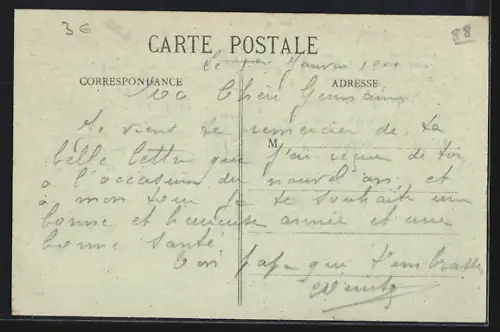 3€
88
CARTE POSTALE
Le 1er Janvier 19
CORRESPONDANCE
ADRESSE
Ma Chère Germaine
Je vient te remercier de ta
M
belle lettre que j'ai reçue de toi
a l'occasion du nouvel an et
à mon tour je te souhaite une
bonne et heureuse année et une
bonne santé
Ton papa qui t'embrasse